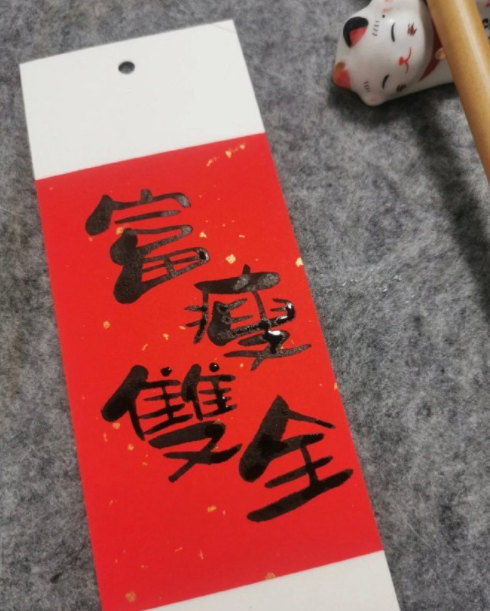 富瘦雙全